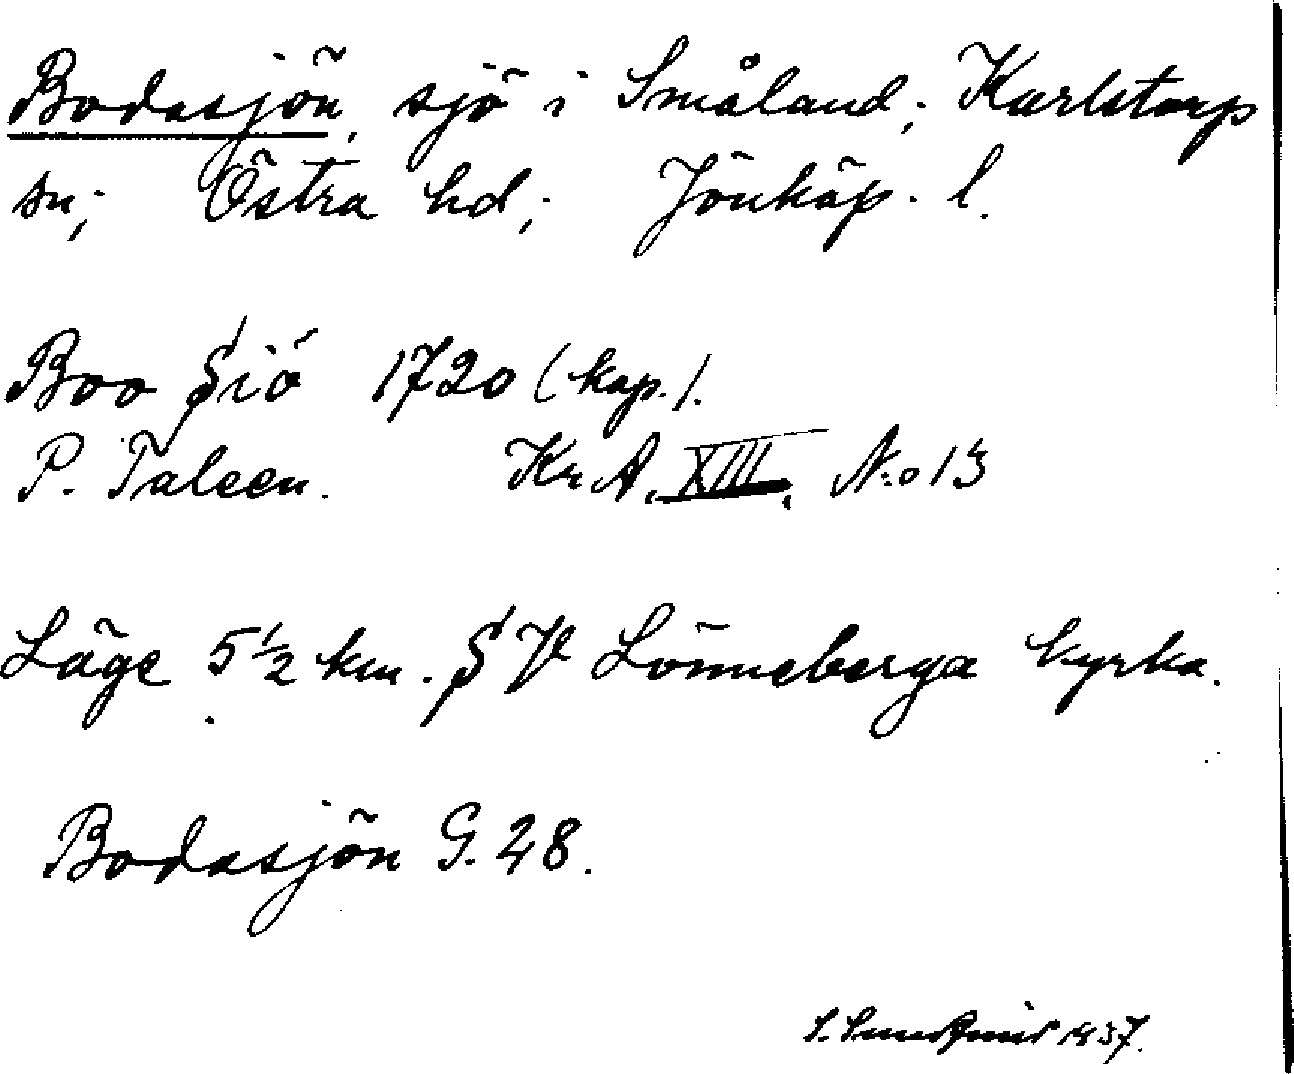 Bodasjön, sjö i Småland; Karlstorp
sn; Östra hd; Jönköp. l.
Boo Siö 1720 (kop.).
P. Taleen. Kr. A. XIII. No 13
Läge 5 1/2 km. SV Lönneberga kyrka.
Bodasjön G. 28.
S. 1937.